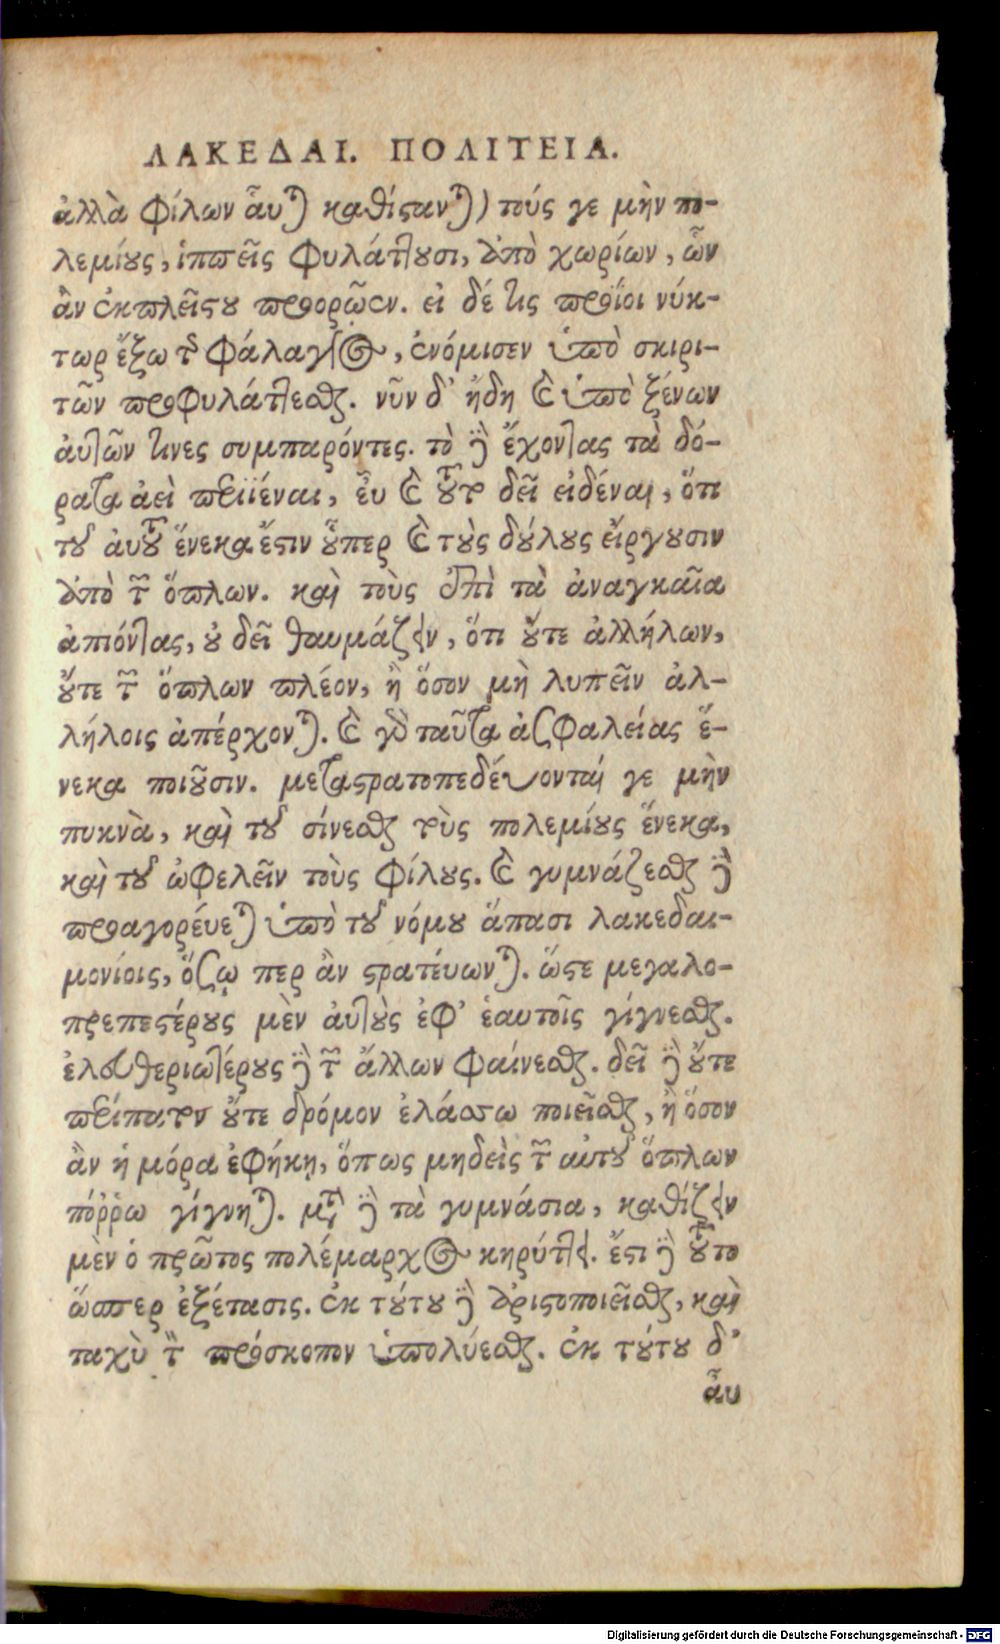 ΛΑΚΕΔΑΙ. ΠΟΛΙΤΕΙΑ.
ἀλλὰ φίλων ἆυται καθίστανται) τούς γε μὴν πο-
λεμίους, ἱππεῖς φυλάττουσι, ἀπὸ χωρίων, ὧν
ἂν ἐκπλεῖστου προορῶεν. εἰ δέ τις προΐοι νύκ-
τωρ ἔξω τῆς φάλαγγος, ἐνόμισεν ὑπὸ σκιρι-
τῶν προφυλάττεσθαι. νῦν δ' ἤδη καὶ ὑπὸ ξένων
ἀυτῶν τινες συμπαρόντες. τὸ δὲ ἔχοντας τὰ δό-
ρατα ἀεὶ περιϊέναι, ἐυ καὶ τοῦτο δεῖ εἰδέναι, ὅτι
τοῦ ἀυτοῦ ἕνεκα ἔστιν οὗπερ καὶ τοὺς δούλους εἴργουσιν
ἀπὸ τῶν ὅπλων. καὶ τοὺς ἐπὶ τὰ ἀναγκαῖα
ἀπιόντας, οὐ δεῖ θαυμάζειν, ὅτι οὔτε ἀλλήλων,
οὔτε τῶν ὅπλων πλέον, ἢ ὅσον μὴ λυπεῖν ἀλ-
λήλοις ἀπέρχονται. καὶ γὰρ ταῦτα ἀσφαλείας ἕ-
νεκα ποιοῦσιν. μεταστρατοπεδέυονται γε μὴν
πυκνὰ, καὶ τοῦ σίνεσθαι τοὺς πολεμίους ἕνεκα,
καὶ τοῦ ὠφελεῖν τοὺς φίλους. καὶ γυμνάζεσθαι δὲ
προαγορέυεται ὑπὸ τοῦ νόμου ἅπασι λακεδαι-
μονίοις, ὅσῳ περ ἂν στρατέυωνται. ὥστε μεγαλο-
πρεπεστέρους μὲν ἀυτοὺς ἐφ' ἑαυτοῖς γίγνεσθαι.
ἐλευθεριωτέρους δὲ τῶν ἄλλων φαίνεσθαι. δεῖ δὲ οὔτε
περίπατον οὔτε δρόμον ἐλάσσω ποιεῖσθαι, ἢ ὅσον
ἂν ἡ μόρα ἐφήκῃ, ὅπως μηδεὶς τῶν αὐτοῦ ὅπλων
πόῤῥω γίγνηται. μετὰ δὲ τὰ γυμνάσια, καθίζειν
μὲν ὁ πρῶτος πολέμαρχος κηρύττει. ἔστι δὲ τοῦτο
ὥσπερ ἐξέτασις. ἐκ τούτου δὲ ἀριστοποιεῖσθαι, καὶ
ταχὺ τὸν πρόσκοπον ὑπολύεσθαι. ἐκ τούτου δ'
ἆυ
Digitalisierung gefördert durch die Deutsche Forschungsgemeinschaft - DFG